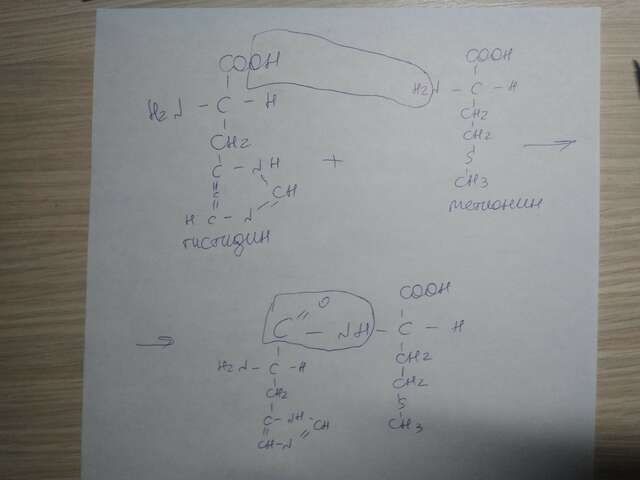 COOH
H2N - C - H
CH2
C - NH
C
CH
H C - N
гистидин
+
COOH
H2N - C - H
CH2
CH2
S
CH3
метионин
→
→
O
C - NH - C - H
COOH
H2N - C - H
CH2
C - NH
CH
CH - N
CH2
CH2
S
CH3